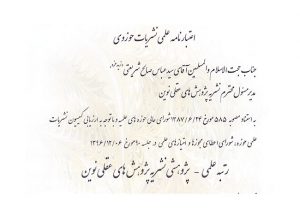 اعتبارنامه علمی نشریات حوزوی
جناب حجت الاسلام والمسلمین آقای سید عباس صالح شریعتی
مدیر مسئول محترم نشریه پژوهش های عقلی نوین
به استناد مصوبه ۵۸۵ مورخ ۱۳۸۷/۶/۲۴ شورای عالی حوزه های علمیه و با توجه به ارزیابی کمیسیون نشریات
علمی حوزه، شورای اعطای مجوزها و امتیازهای علمی در جلسه ۹۰ مورخ ۱۳۹۶/۱۲/۰۶
رتبه علمی - پژوهشی نشریه پژوهش های عقلی نوین